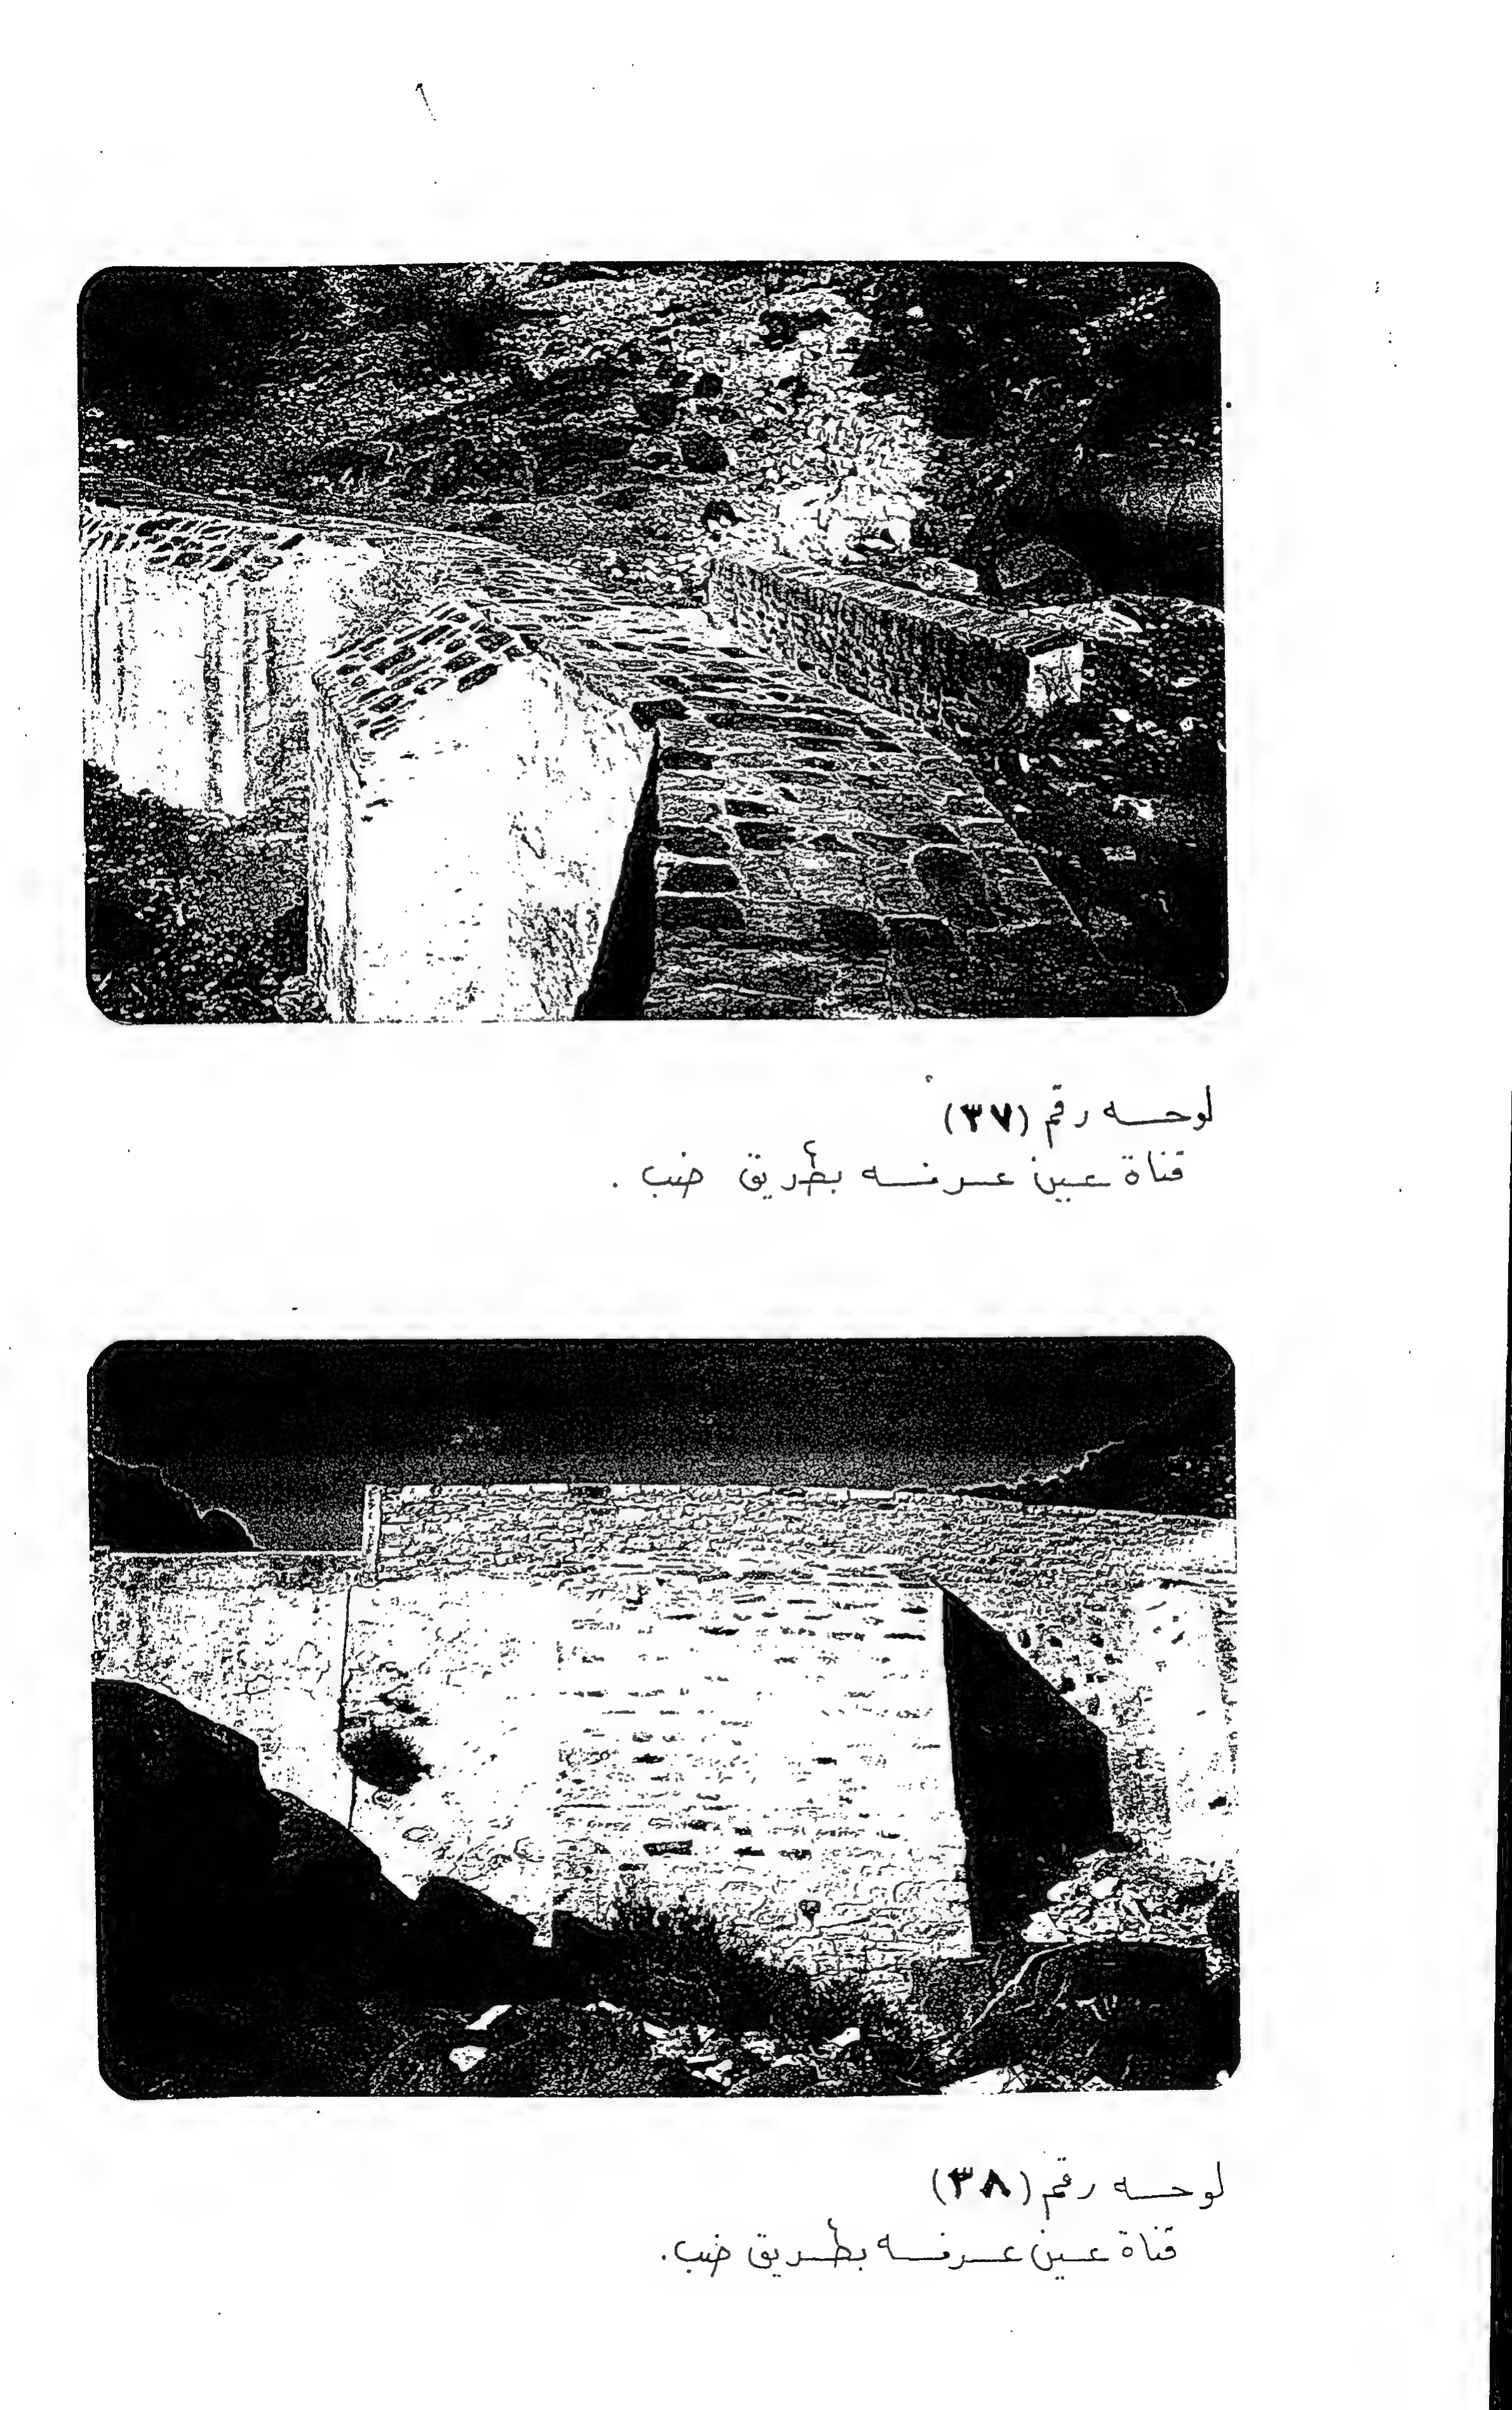 لوحه رقم (٣٧)
قناة عين عرفه بطريق ضب .
لوحه رقم (٣٨)
قناة عين عرفه بطريق ضب.